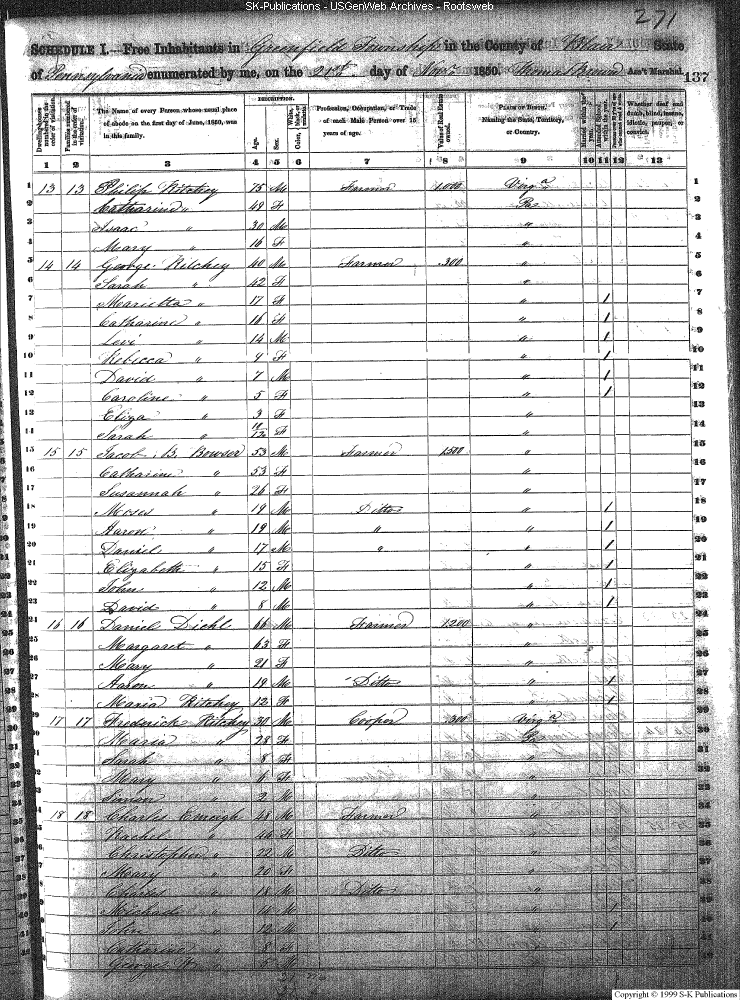 SK-Publications - USGenWeb Archives - Rootsweb
271
SCHEDULE I.—Free Inhabitants in Greenfield Township in the County of Blair State
of Pennsylvania enumerated by me, on the 21st day of Novr 1850. Ass't Marshal. 137
Dwelling-houses numbered in the order of visitation. Families numbered in the order of visitation. The Name of every Person whose usual place of abode on the first day of June, 1850, was in this family. DESCRIPTION. Age. Sex. Color, White, black, or mulatto. Profession, Occupation, or Trade of each Male Person over 15 years of age. Value of Real Estate owned. PLACE OF BIRTH. Naming the State, Territory, or Country. Married within the year. Attended School within the year. Whether deaf and dumb, blind, insane, idiotic, pauper, or convict.
1 2 3 4 5 6 7 8 9 10 11 12 13
1 13 13 Philip Ritchey 75 M Farmer 1,000 Virga 1
2 Catharine " 49 F Pa 2
3 Isaac " 30 M " 3
4 Mary " 16 F " 4
5 14 14 George Ritchey 40 M Farmer 300 " 5
6 Sarah " 42 F " 6
7 Marietta " 17 F " / 7
8 Catharine " 16 F " / 8
9 Levi " 14 M " / 9
10 Rebecca " 9 F " / 10
11 David " 7 M " / 11
12 Caroline " 5 F " / 12
13 Eliza " 3 F " 13
14 Sarah " F " 14
15 15 15 Jacob B. Bowser 53 M Farmer 1500 " 15
16 Catharine " 53 F " 16
17 Susannah " 26 F " 17
18 Moses " 19 M Ditto " / 18
19 Aaron " 19 M " " / 19
20 Daniel " 17 M " " / 20
21 Elizabeth " 15 F " / 21
22 John " 12 M " / 22
23 David " 8 M " / 23
24 16 16 Daniel Diehl 66 M Farmer 1200 " 24
25 Margaret " 63 F " 25
26 Mary " 21 F " 26
27 Aaron " 19 M Ditto " / 27
28 Maria Ritchey 12 F " / 28
29 17 17 Frederick Ritchey 30 M Cooper 300 Virga 29
30 Maria " 28 F Pa 30
Sarah " 8 F "
Mary " 6 F "
Simon " 2 M "
18 18 Charles Emeigh 48 M Farmer "
Rachel " 46 F "
Christopher " 22 M Ditto "
Mary " 20 F "
Charles " 18 M Ditto "
Michael " 14 M " /
John " 12 M " /
Catharine " 8 F "
George W " M "
Copyright © 1999 S-K Publications